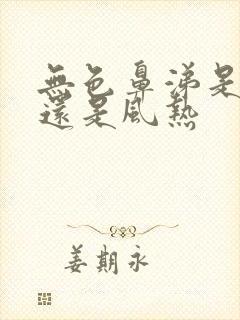 無色鼻涕是
還是風熱
姜期永